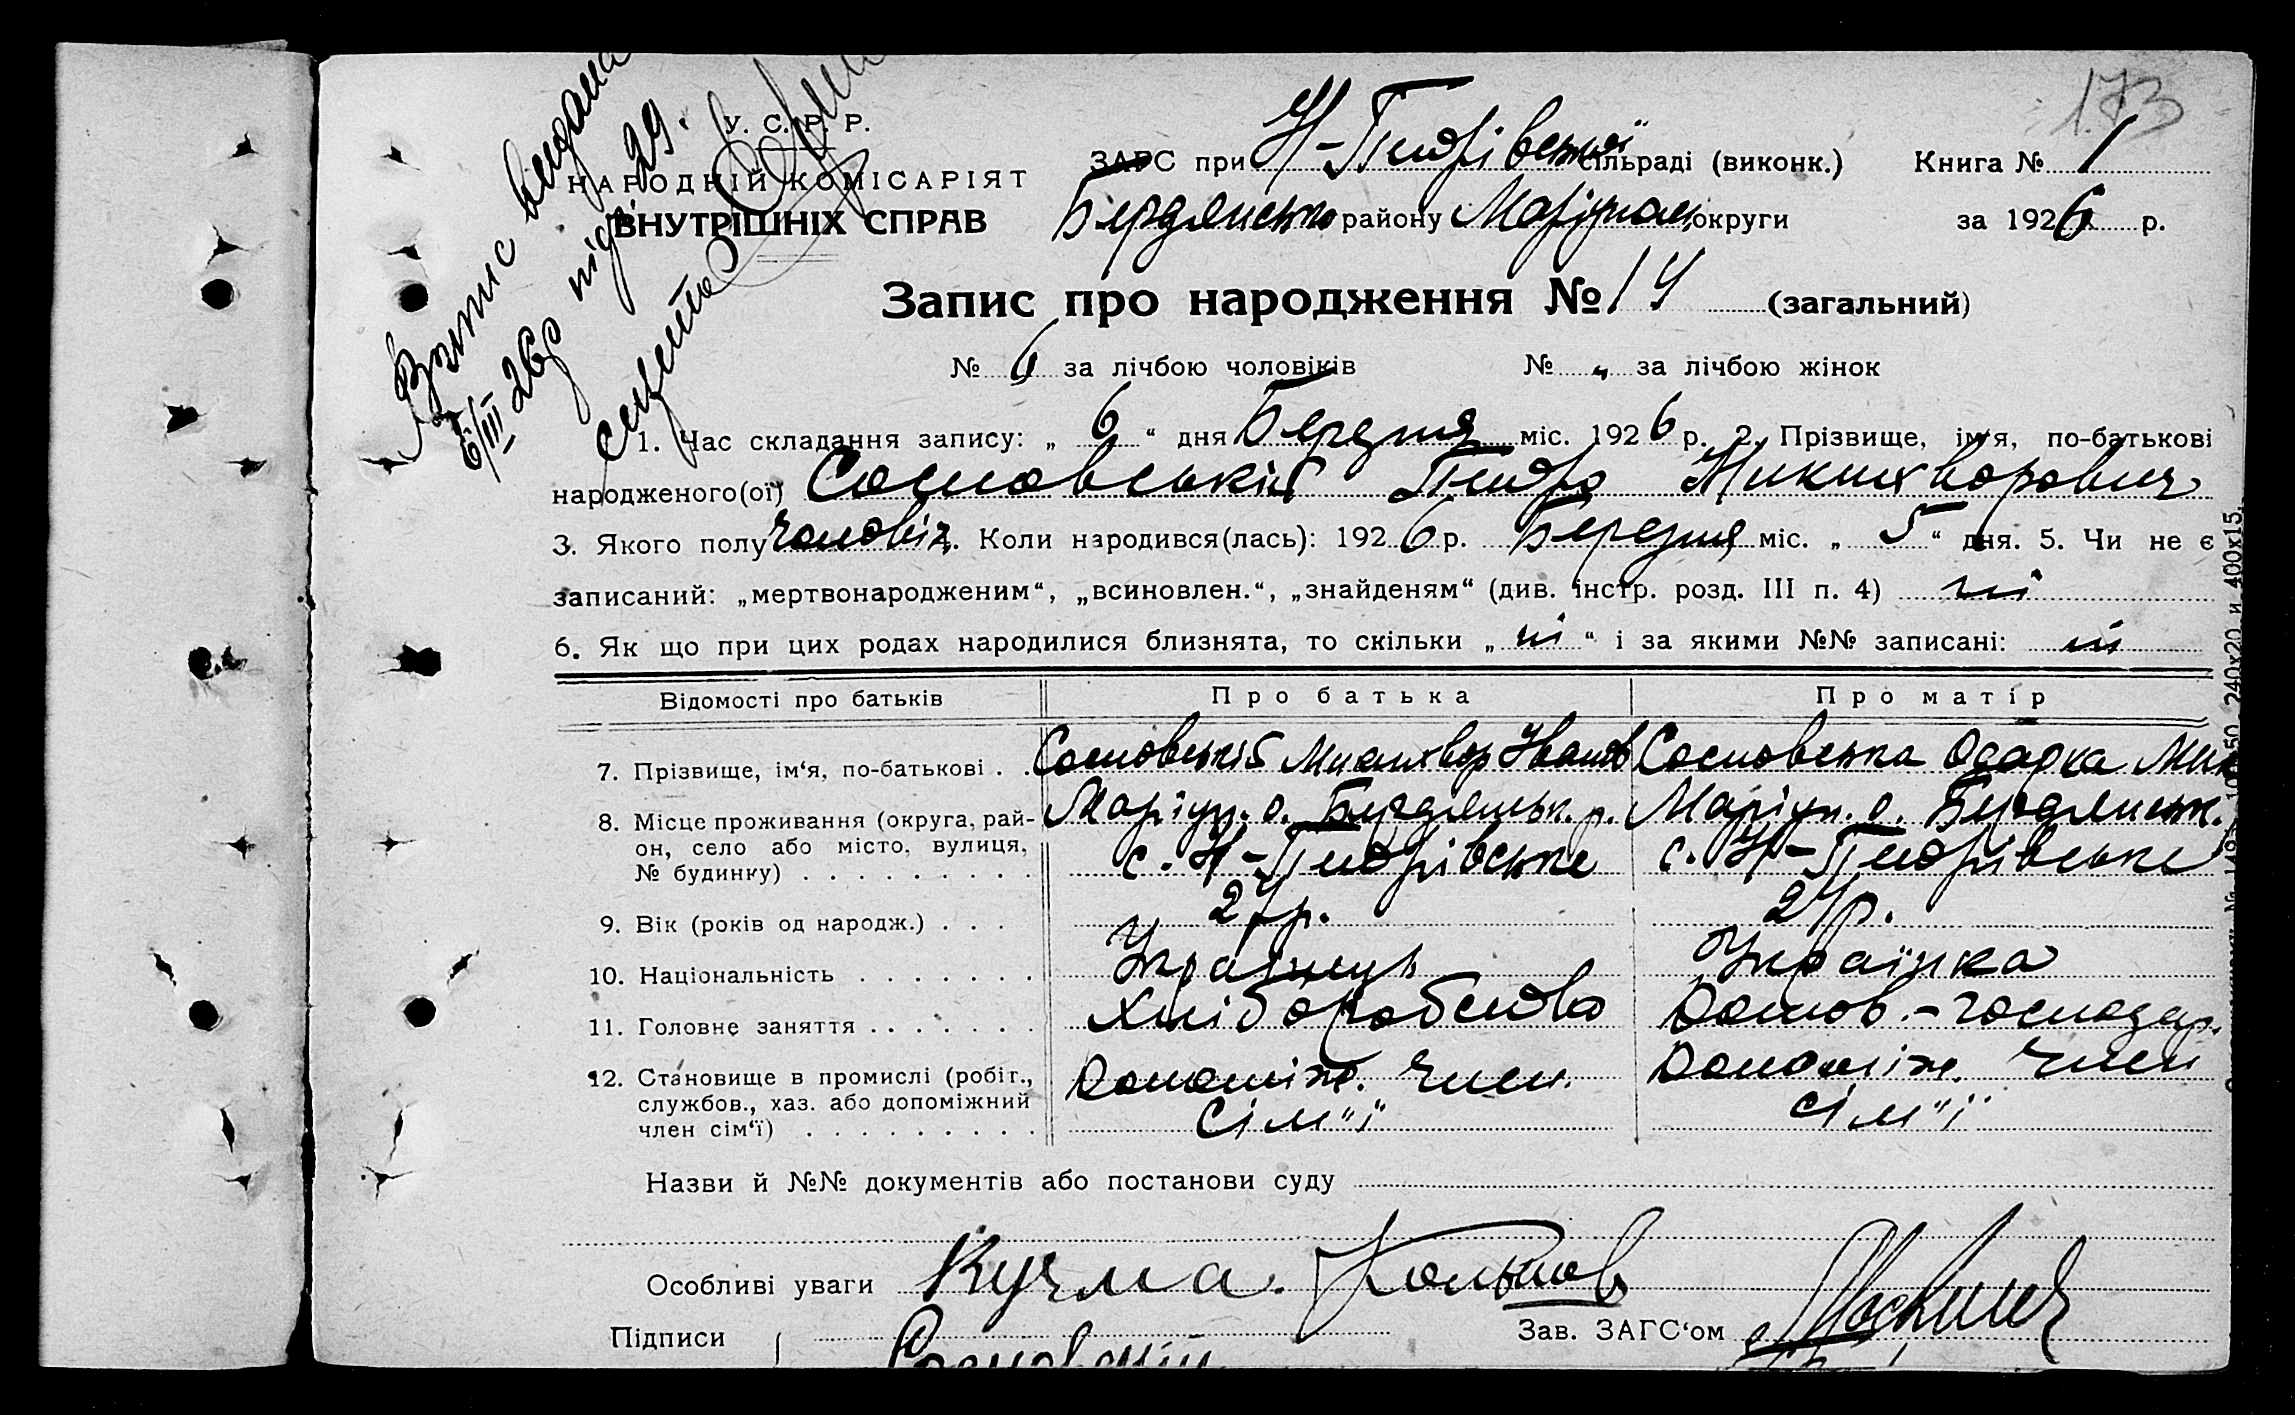 173
Витис видано
6/III 26р під 29.
У. С. Р. Р.
НАРОДНІЙ КОМІСАРІЯТ
ВНУТРІШНІХ СПРАВ
ЗАГС при Н-Петрівській сільраді (виконк.) Книга № 1
Бердянсько району Маріупол. округи за 1926 р.
Запис про народження № 14 (загальний)
№ 6 за лічбою чоловіків № „ за лічбою жінок
1. Час складання запису: „ 6 “ дня Березня міс. 1926 р. 2. Прізвище, ім'я, по-батькові
народженого(ої) Сосновський Петро Никихворович
3. Якого полу чоловіч. 4. Коли народився(лась): 1926 р. Березня міс. „ 5 “ дня. 5. Чи не є
записаний: „мертвонародженим“, „всиновлен.“, „знайденям“ (див. інстр. розд. III п. 4) ні
6. Як що при цих родах народилися близнята, то скільки „ ні “ і за якими №№ записані: ні
Відомості про батьків Про батька Про матір
7. Прізвище, ім‘я, по-батькові . . Сосновській Микихвор Іванов Сосновська Одарка Мик
8. Місце проживання (округа, рай- Маріуп. о. Бердянськ. р. Маріуп. о. Бердянськ.
он, село або місто, вулиця,
№ будинку) . . . . . . . . . с. Н-Петрівське с. Н-Петрівське
9. Вік (років од народж.) . . . 27р. 24р.
10. Національність . . . . . . . Українець Українка
11. Головне заняття . . . . . . . Хліборобство Домов.-господар.
12. Становище в промислі (робіт., Допоміж. член Допоміж. член
службов., хаз. або допоміжний
член сім‘ї) . . . . . . . . . сім"ї сім"ї
Назви й №№ документів або постанови суду
Особливі уваги Кучма.
Підписи Зав. ЗАГС‘ом
Сосновський